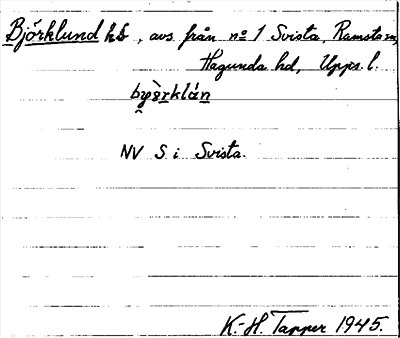 Björklund hs, avs. från no 1 Svista, Ramsta sn,
Hagunda hd, Upps. l.
NV S i Svista.
K.-H. Tapper 1945.